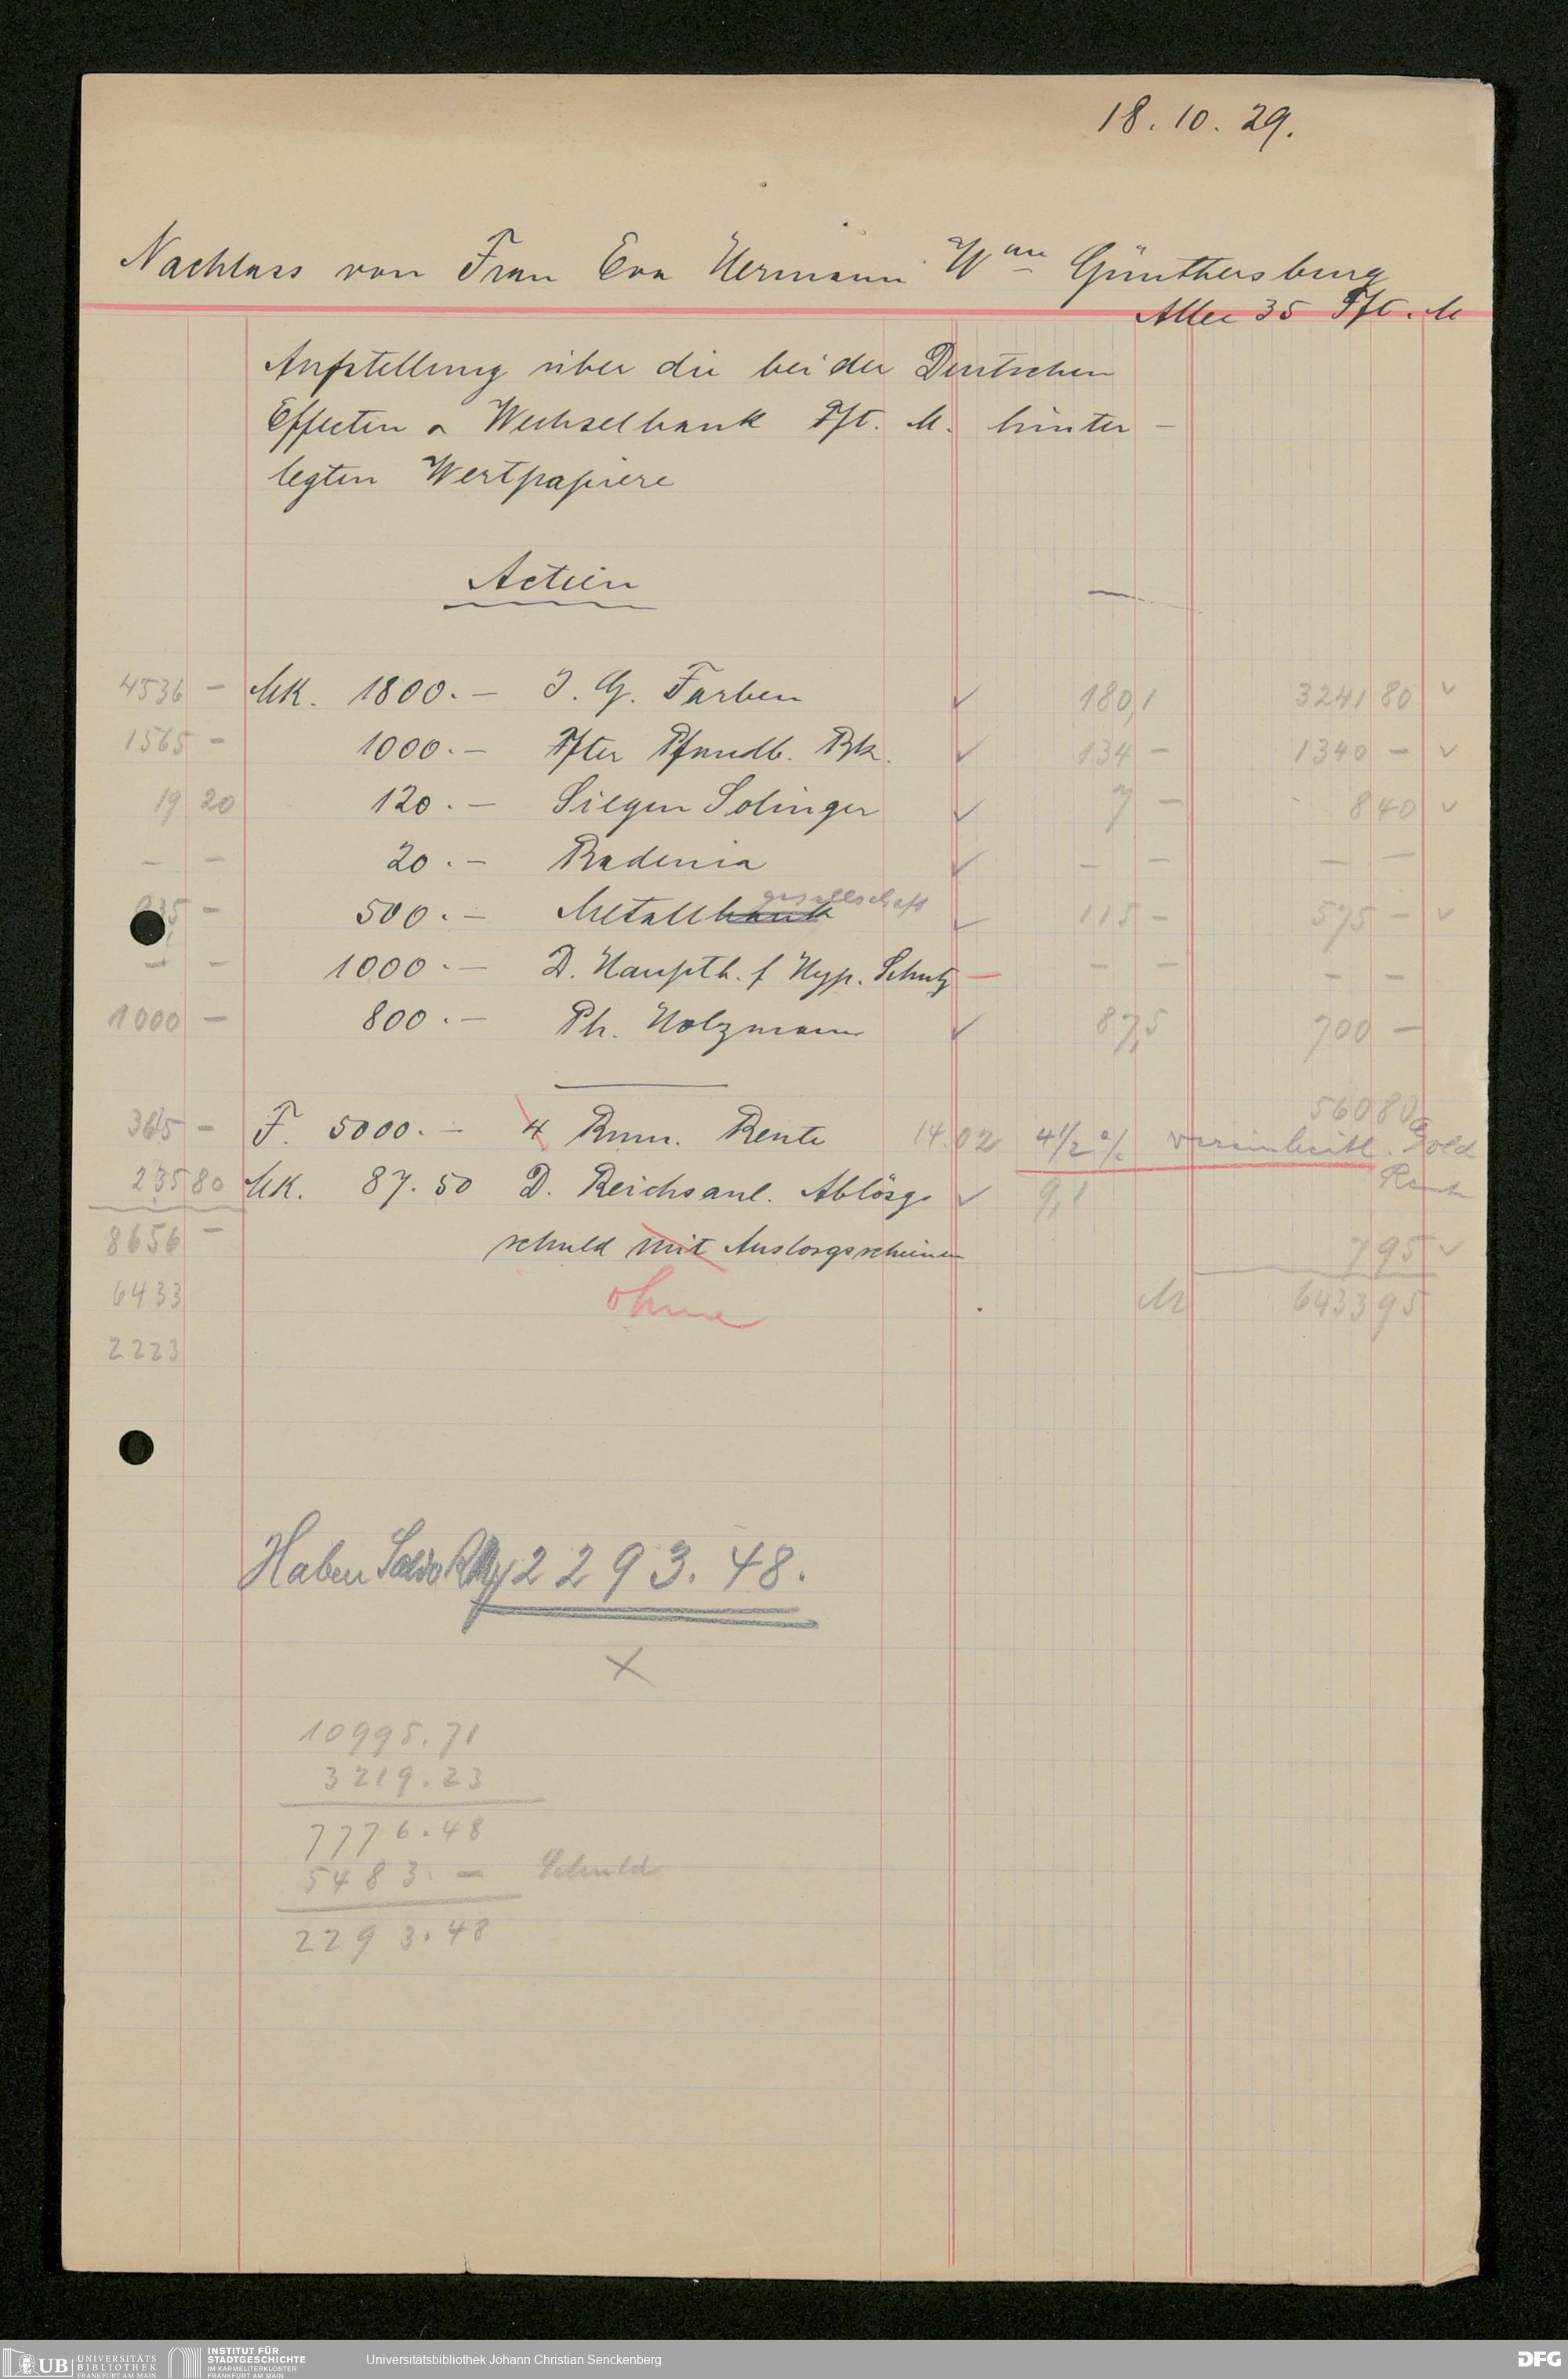 18. 10. 29.
Nachlass von Frau Eva Hermann Wwe Günthersburg
Allee 35 Fft. M
Aufstellung über die bei der Deutschen
Effecten & Wechselbank Fft. M. hinter-
legten Wertpapiere
Actien
4536 - Mk. 1800.- I. G. Farben 180,1 3241 80
1565 - 1000.- Ffter Pfandb. Bk. 134 - 1340 -
19 20 120.- Siegen Solinger 7 - 8 40
- - 20.- Badenia - - - -
gesellschaft
35 - 500.- Metallbank 115 - 575 -
- - 1000.- D. Hauptb. f Hyp. Schutz - - - -
1000 - 800.- Ph. Holzmann 87,5 700 -
560 80
365 - F. 5000.- 4 Rum. Rente 14.02 4 1/2 % vereinheitl. Gold
Rente
235 80 Mk. 87.50 D. Reichsanl. Ablösgs 9,1
8656 - schuld mit Auslosgsscheinen 7 95
ohne
6433 M 6433 95
2223
Haben Saldo 2293.48.
10995.71
3219.23
7776.48
5483.- Schuld
2293.48
UB UNIVERSITÄTS
BIBLIOTHEK
FRANKFURT AM MAIN
INSTITUT FÜR
STADTGESCHICHTE
IM KARMELITERKLOSTER
FRANKFURT AM MAIN
Universitätsbibliothek Johann Christian Senckenberg
DFG